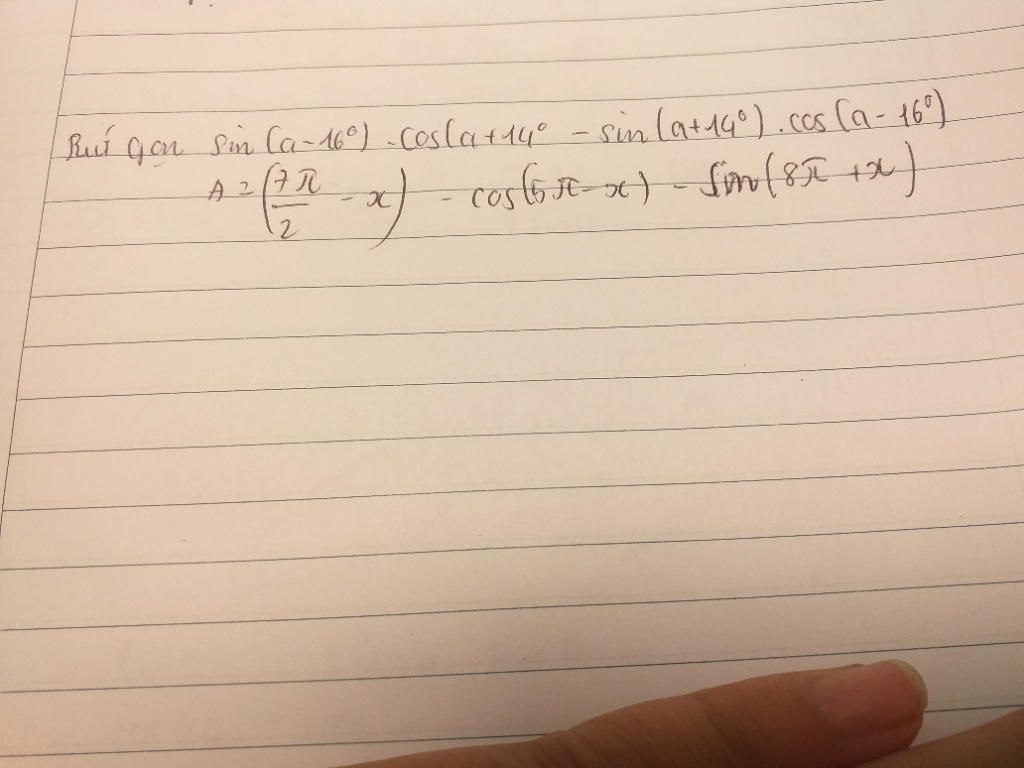 Rút gọn sin (a-16⁰) . cos(a+14⁰ - sin (a+14⁰) . cos (a-16⁰)
A = (7π/2 - x) - cos(5π - x) - Sin(8π + x)